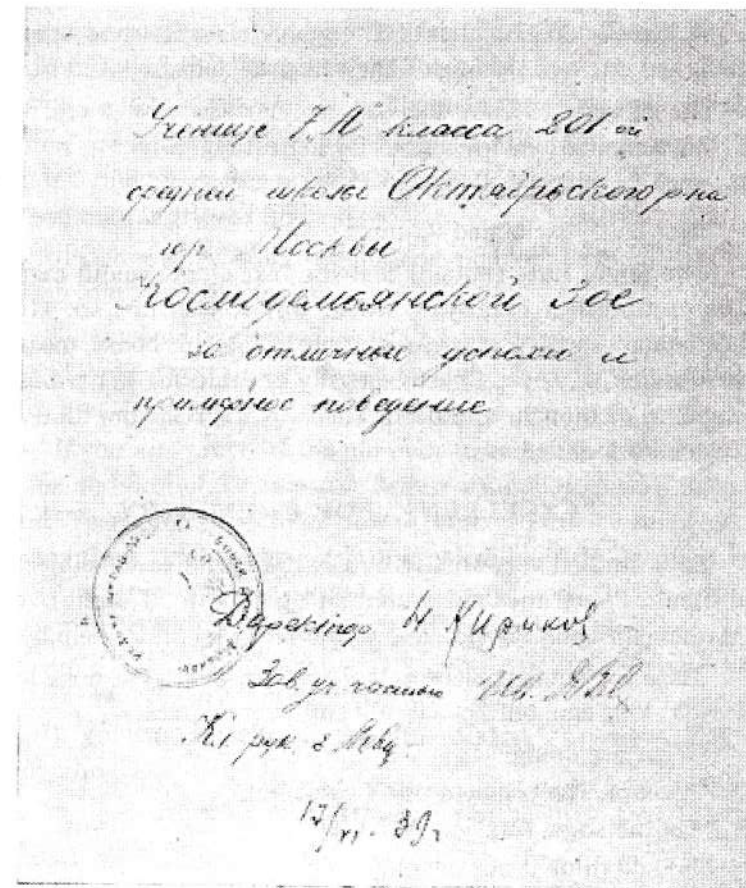 Ученице 7 А класса 201-ой
средней школы Октябрьского р-на
гор. Москвы
Космодемьянской Зое
за отличные успехи и
примерное поведение
Директор Н Кириков
Зав. уч. частью
Кл. рук.
17/VI - 39 г